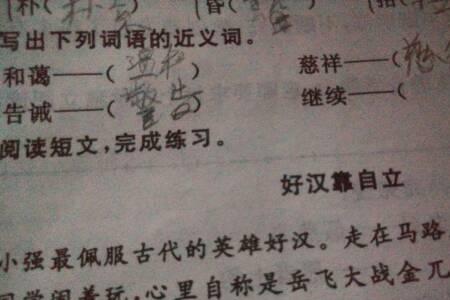 朴(朴 昏( 招(
写出下列词语的近义词。
和蔼——(温和) 慈祥——(慈
告诫——(警告) 继续——(
阅读短文,完成练习。
好汉靠自立
小强最佩服古代的英雄好汉。走在马路
同学闹着玩,心里自称是岳飞大战金兀